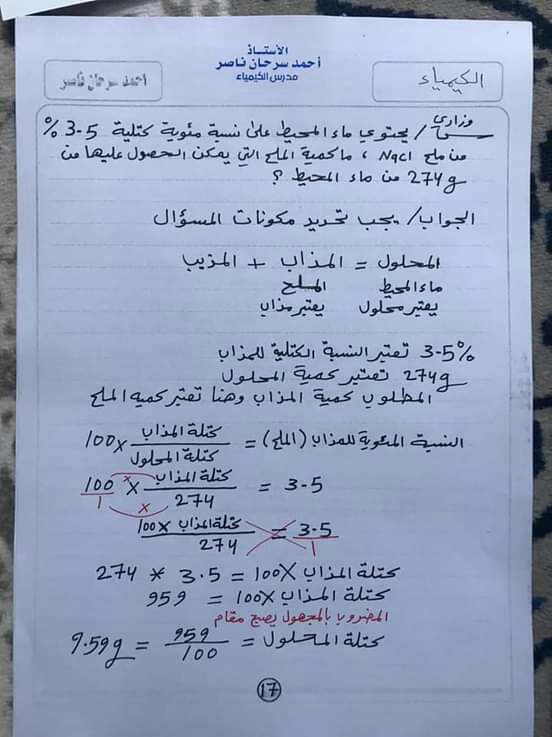 الأستاذ
أحمد سرحان ناصر
مدرس الكيمياء
الكيمياء
احمد سرحان ناصر
وزاري
س/ يحتوي ماء المحيط على نسبة مئوية كتلية 3.5%
من ملح NaCl ، ما كمية الملح التي يمكن الحصول عليها من
274g من ماء المحيط ؟
الجواب/ يجب تحديد مكونات المسؤال
المحلول = المذاب + المذيب
ماء المحيط الملح
يعتبر محلول يعتبر مذاب
3.5% تعتبر النسبة الكتلية للمذاب
274g تعتبر كمية المحلول
المطلوب كمية المذاب وهنا تعتبر كميه الملح
النسبة المئوية للمذاب (الملح) = كتلة المذاب / كتلة المحلول × 100
3.5 = كتلة المذاب / 274 × 100 / 1
3.5 / 1 = كتلة المذاب × 100 / 274
كتلة المذاب × 100 = 3.5 * 274
كتلة المذاب × 100 = 959
المضروب بالمجهول يصبح مقام
كتلة المحلول = 959 / 100 = 9.59g
17